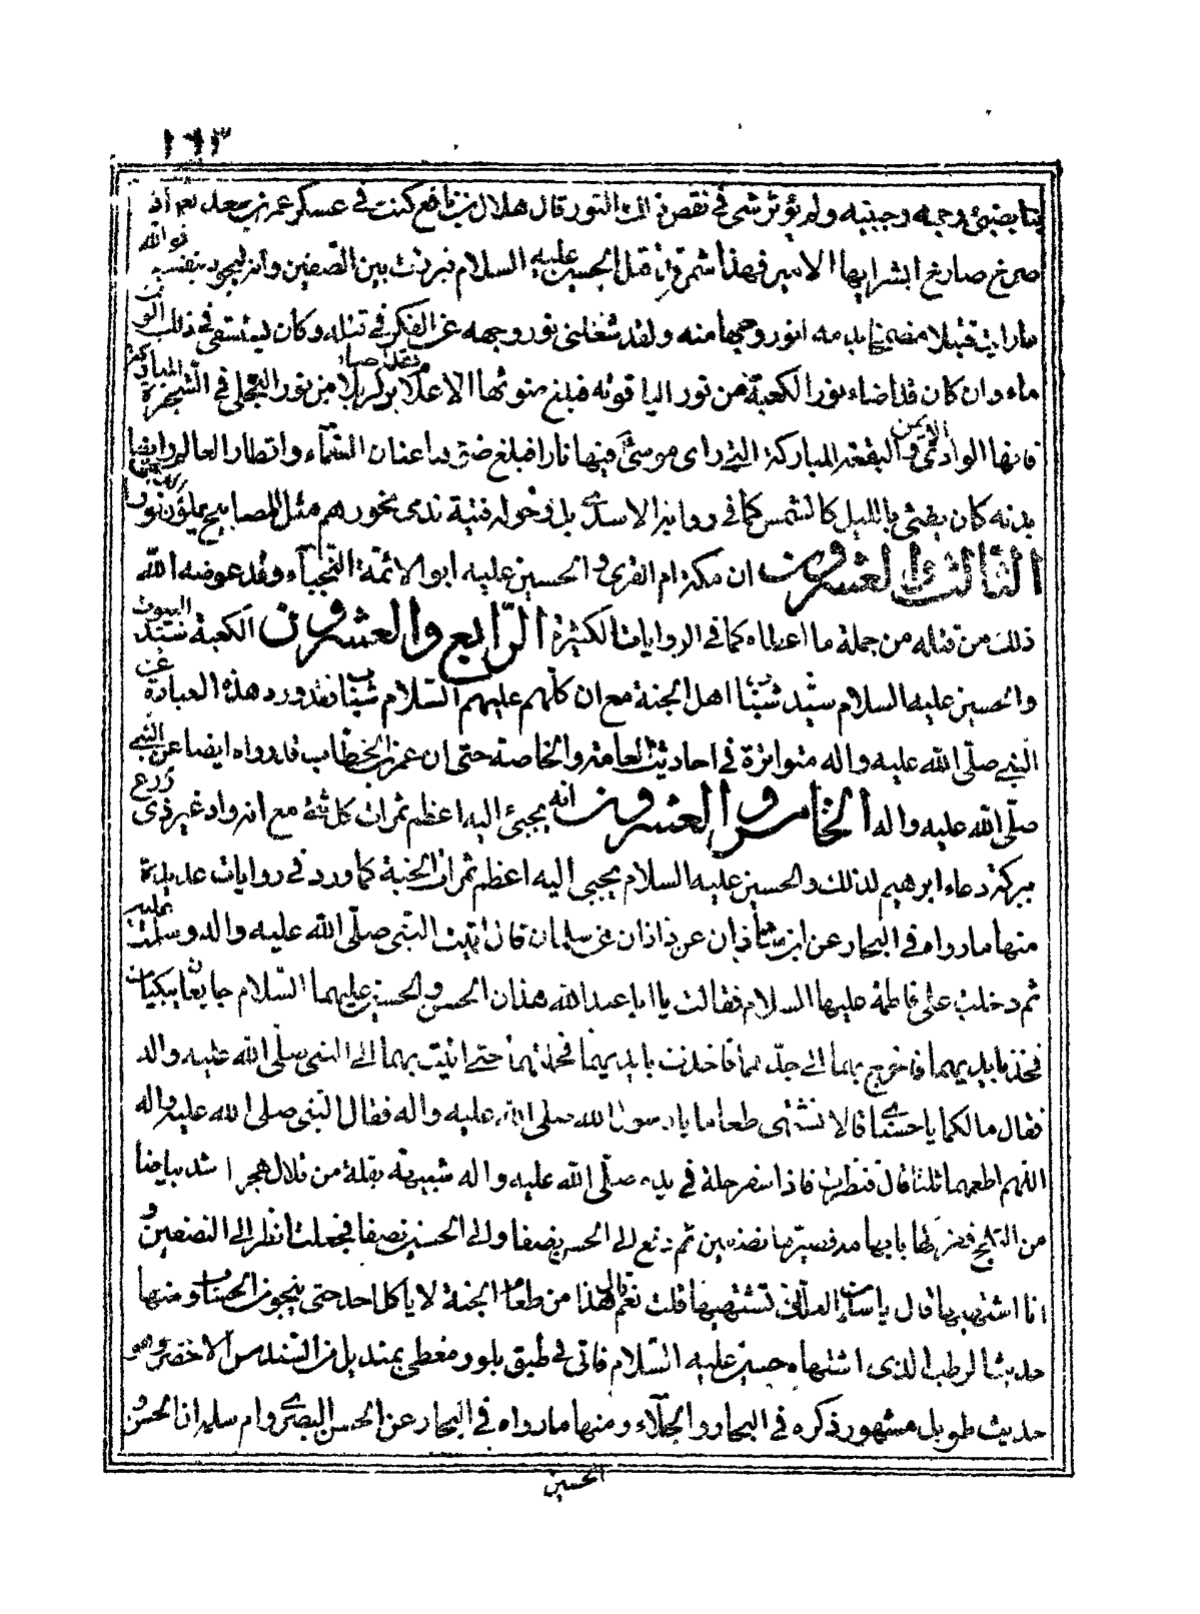 ١٦٣
يضيئ وجهه وجبينه ولم يؤثر شئ في نقص ذلك النور قال هلال بن نافع كنت في عسكر عمر بن سعد اذ
صرخ صارخ ابشر ايها الامير فهذا شمر قد قتل الحسين عليه السلام فبرزت بين الصفين وانه ليجود بنفسه فوالله
ما رايت قتيلا مضمخا بدمه انور وجها منه ولقد شغلني نور وجهه عن الفكر في قتله وكان يستسقى في ذلك الوقت
ماء وان كان قد اضاء نور الكعبة من نور الياقوته فبلغ ضوئها الاعلام فقد اضاء كربلا من نور التجلى في الشجرة المباركة
فانها الوادي الايمن في البقعة المباركة التي راى موسى فيها نارا فبلغ ضوئه اعنان السماء واقطار العالم وايضا
بدنه كان يضئ بالليل كالشمس كما في رواية الاسدي بل وحوله فتية تدمى نحورهم مثل المصابيح يملؤن نورا
الثالث والعشرون ان مكة ام القرى والحسين عليه ابو الائمة النجباء وقد عوضه الله
ذلك من قتله من جملة ما اعطاه كما في الروايات الكثيرة الرابع والعشرون الكعبة سيد البيوت
والحسين عليه السلام سيد شباب اهل الجنة مع ان كلهم عليهم السلام شباب فقد ورد هذه العبارة عن
النبي صلى الله عليه واله متواترة في احاديث العامة والخاصة حتى ان عمر بن الخطاب قد رواه ايضا عن النبي
صلى الله عليه واله الخامس والعشرون انه يجيئ اليه اعظم ثمرات كل شئ مع انه واد غير ذى زرع
ببركة دعاء ابرهيم لذلك والحسين عليه السلام يجيئ اليه اعظم ثمرات الجنة كما ورد في روايات عديدة
منها ما رواه في البحار عن ابن شاذان عن زاذان عن سلمان قال اتيت النبي صلى الله عليه واله وسلمت عليه
ثم دخلت على فاطمة عليها السلام فقالت يا ابا عبد الله هذان الحسن والحسين عليهما السلام جايعان يبكيان
فخذ بايديهما فاخرج بهما الى جدهما فاخذت بايديهما فحملتهما حتى اتيت بهما الى النبي صلى الله عليه واله
فقال مالكما يا حسناي قالا نشتهى طعاما يا رسول الله صلى الله عليه واله فقال النبي صلى الله عليه واله
اللهم اطعمهما ثلثا قال فنظرت فاذا سفرجلة في يده صلى الله عليه واله شبيهة بقلة من قلال هجر اشد بياضا
من الثلج ففركها بابهامه فصيرها نصفين ثم دفع الى الحسن نصفا والى الحسين نصفا فجعلت انظر الى النصفين و
انا اشتهيها قال يا سلمان لعلك تشتهيها قلت نعم قال هذا من طعام الجنة لا ياكل احد حتى ينجو من الحساب ومنها
حديث الرطب الذى اشتهاه حسين عليه السلام فاتى في طبق بلور مغطى بمنديل من السندس الاخضر وهو
حديث طويل مشهور ذكره في البحار والجلاء ومنها ما رواه في البحار عن الحسن البصرى وام سلمه ان الحسن و
الحسين